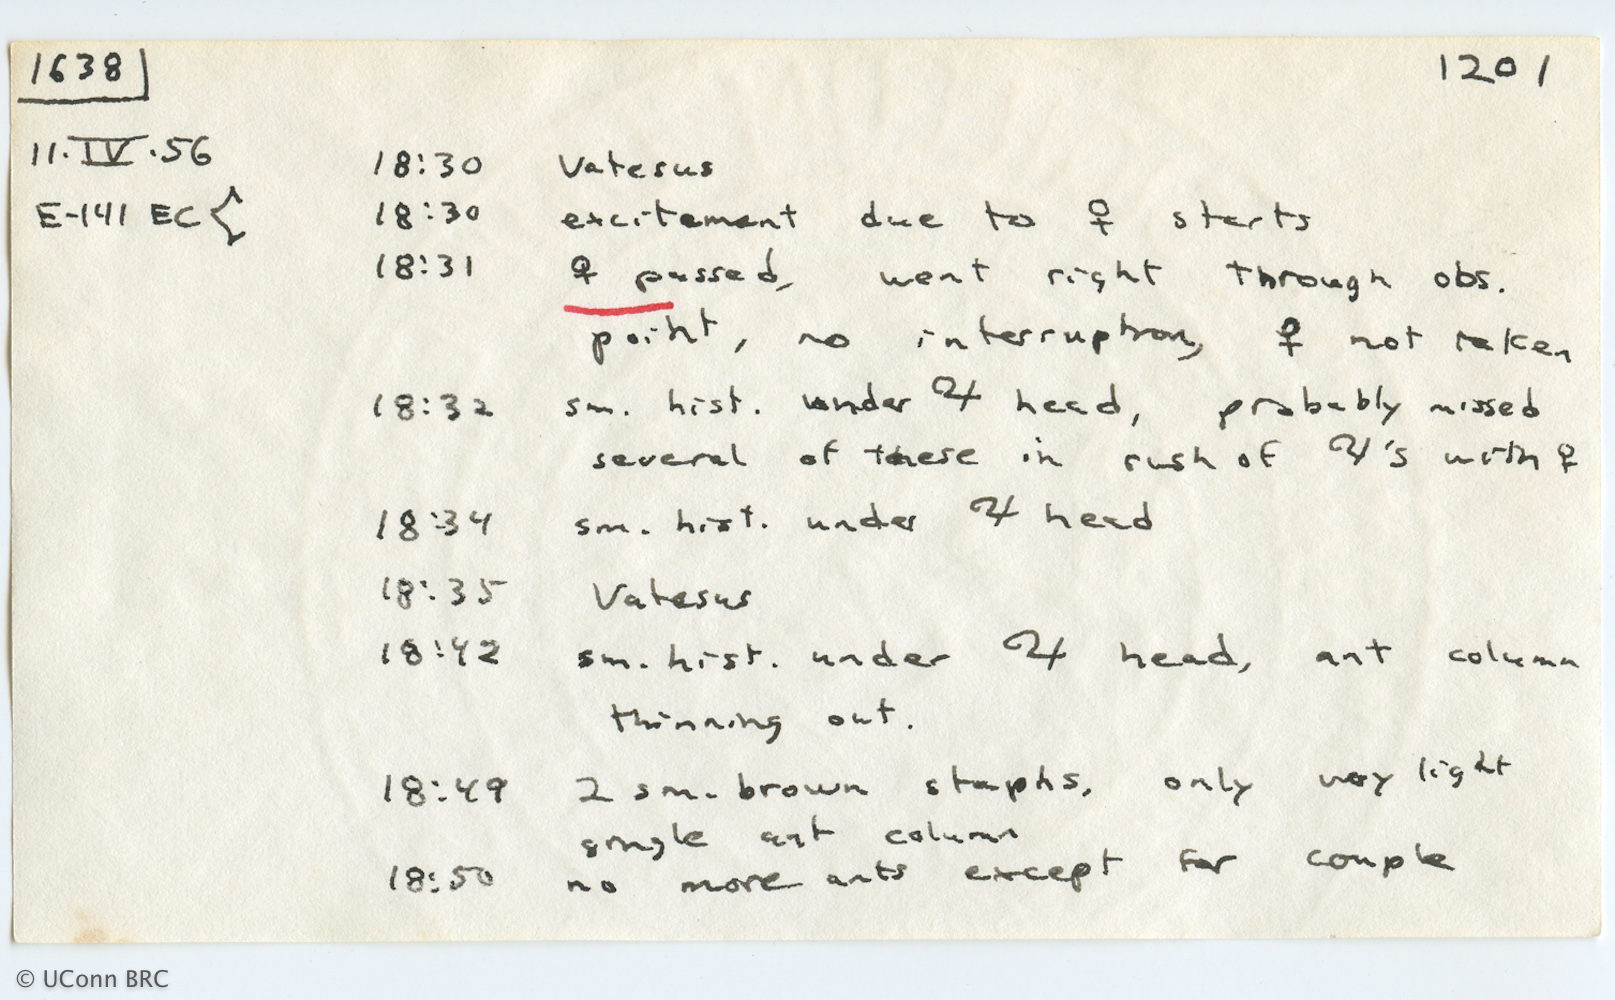 1638 1201
11.IV.56 18:30 Vatesus
E-141 EC { 18:30 excitement due to ♀ starts
18:31 ♀ passed, went right through obs.
point, no interruption, ♀ not taken
18:32 sm. hist. under ♃ head, probably missed
several of these in rush of ♃'s with ♀
18:34 sm. hist. under ♃ head
18:35 Vatesus
18:42 sm. hist. under ♃ head, ant column
thinning out.
18:49 2 sm. brown staphs, only very light
single ant column
18:50 no more ants except for couple
© UConn BRC